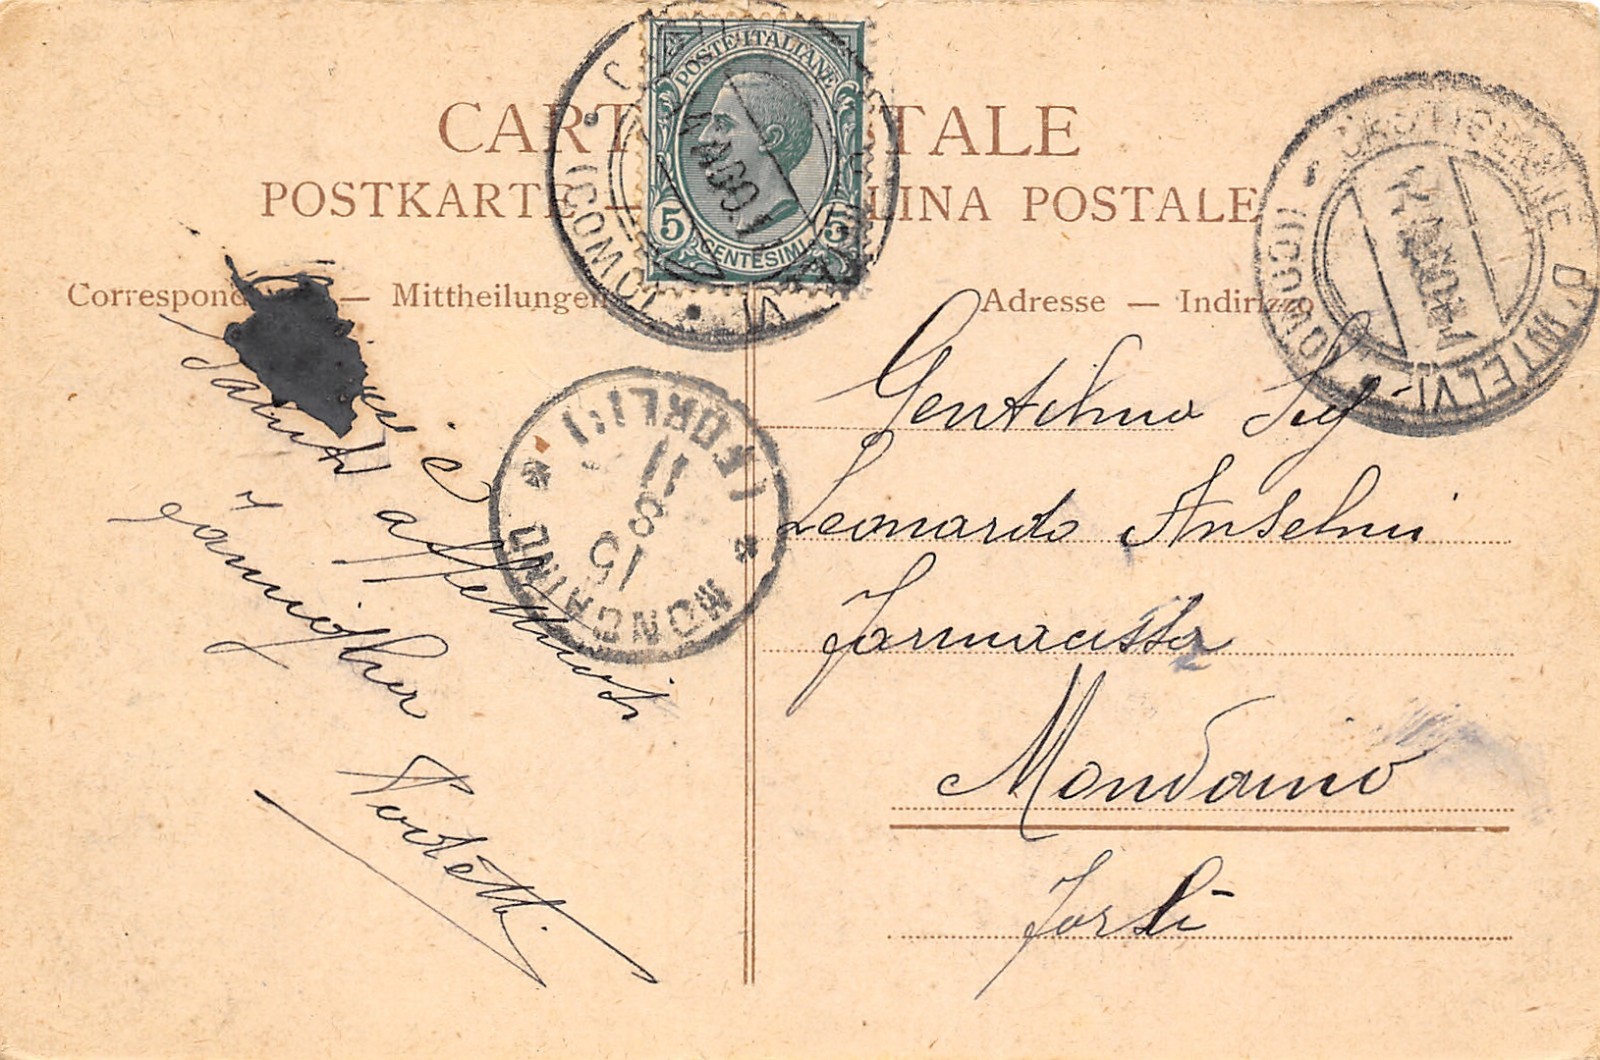 CARTE POSTALE
POSTKARTE — CARTOLINA POSTALE
Correspondance — Mittheilungen
Adresse — Indirizzo
POSTE ITALIANE
5 CENTESIMI 5
(COMO)
CASTIGLIONE D'INTELVI
(COMO)
MONDAINO
(FORLI)
11
8
15
Saluti affettuosi
famiglia
Gentilmo Sig
Leonardo Anselmi
Farmacista
Mondaino
Forlì